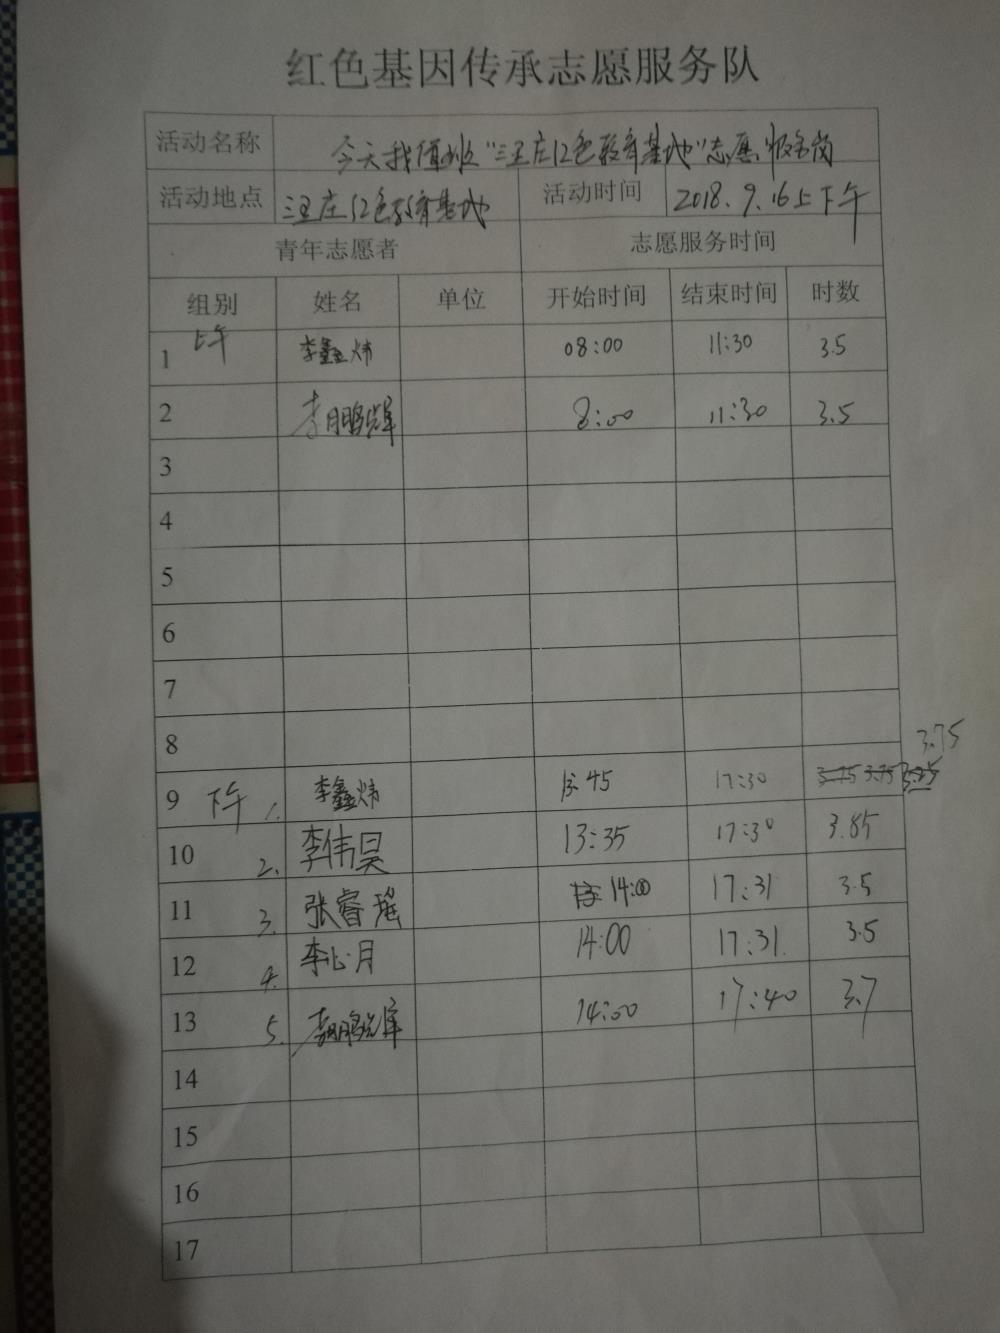 红色基因传承志愿服务队
活动名称 今天我值班"三王庄红色教育基地"志愿服务岗
活动地点 三王庄红色教育基地 活动时间 2018.9.16上下午
青年志愿者 志愿服务时间
组别 姓名 单位 开始时间 结束时间 时数
上午
1 李鑫炜 08:00 11:30 3.5
2 李鹏辉 8:00 11:30 3.5
3
4
5
6
7
8
3.75
9 下午 1. 李鑫炜 13:45 17:30
10 2. 李伟昊 13:35 17:30 3.85
11 3. 张睿瑶 14:00 17:31 3.5
12 4. 李心月 14:00 17:31. 3.5
13 5. 李鹏辉 14:00 17:40 3.7
14
15
16
17